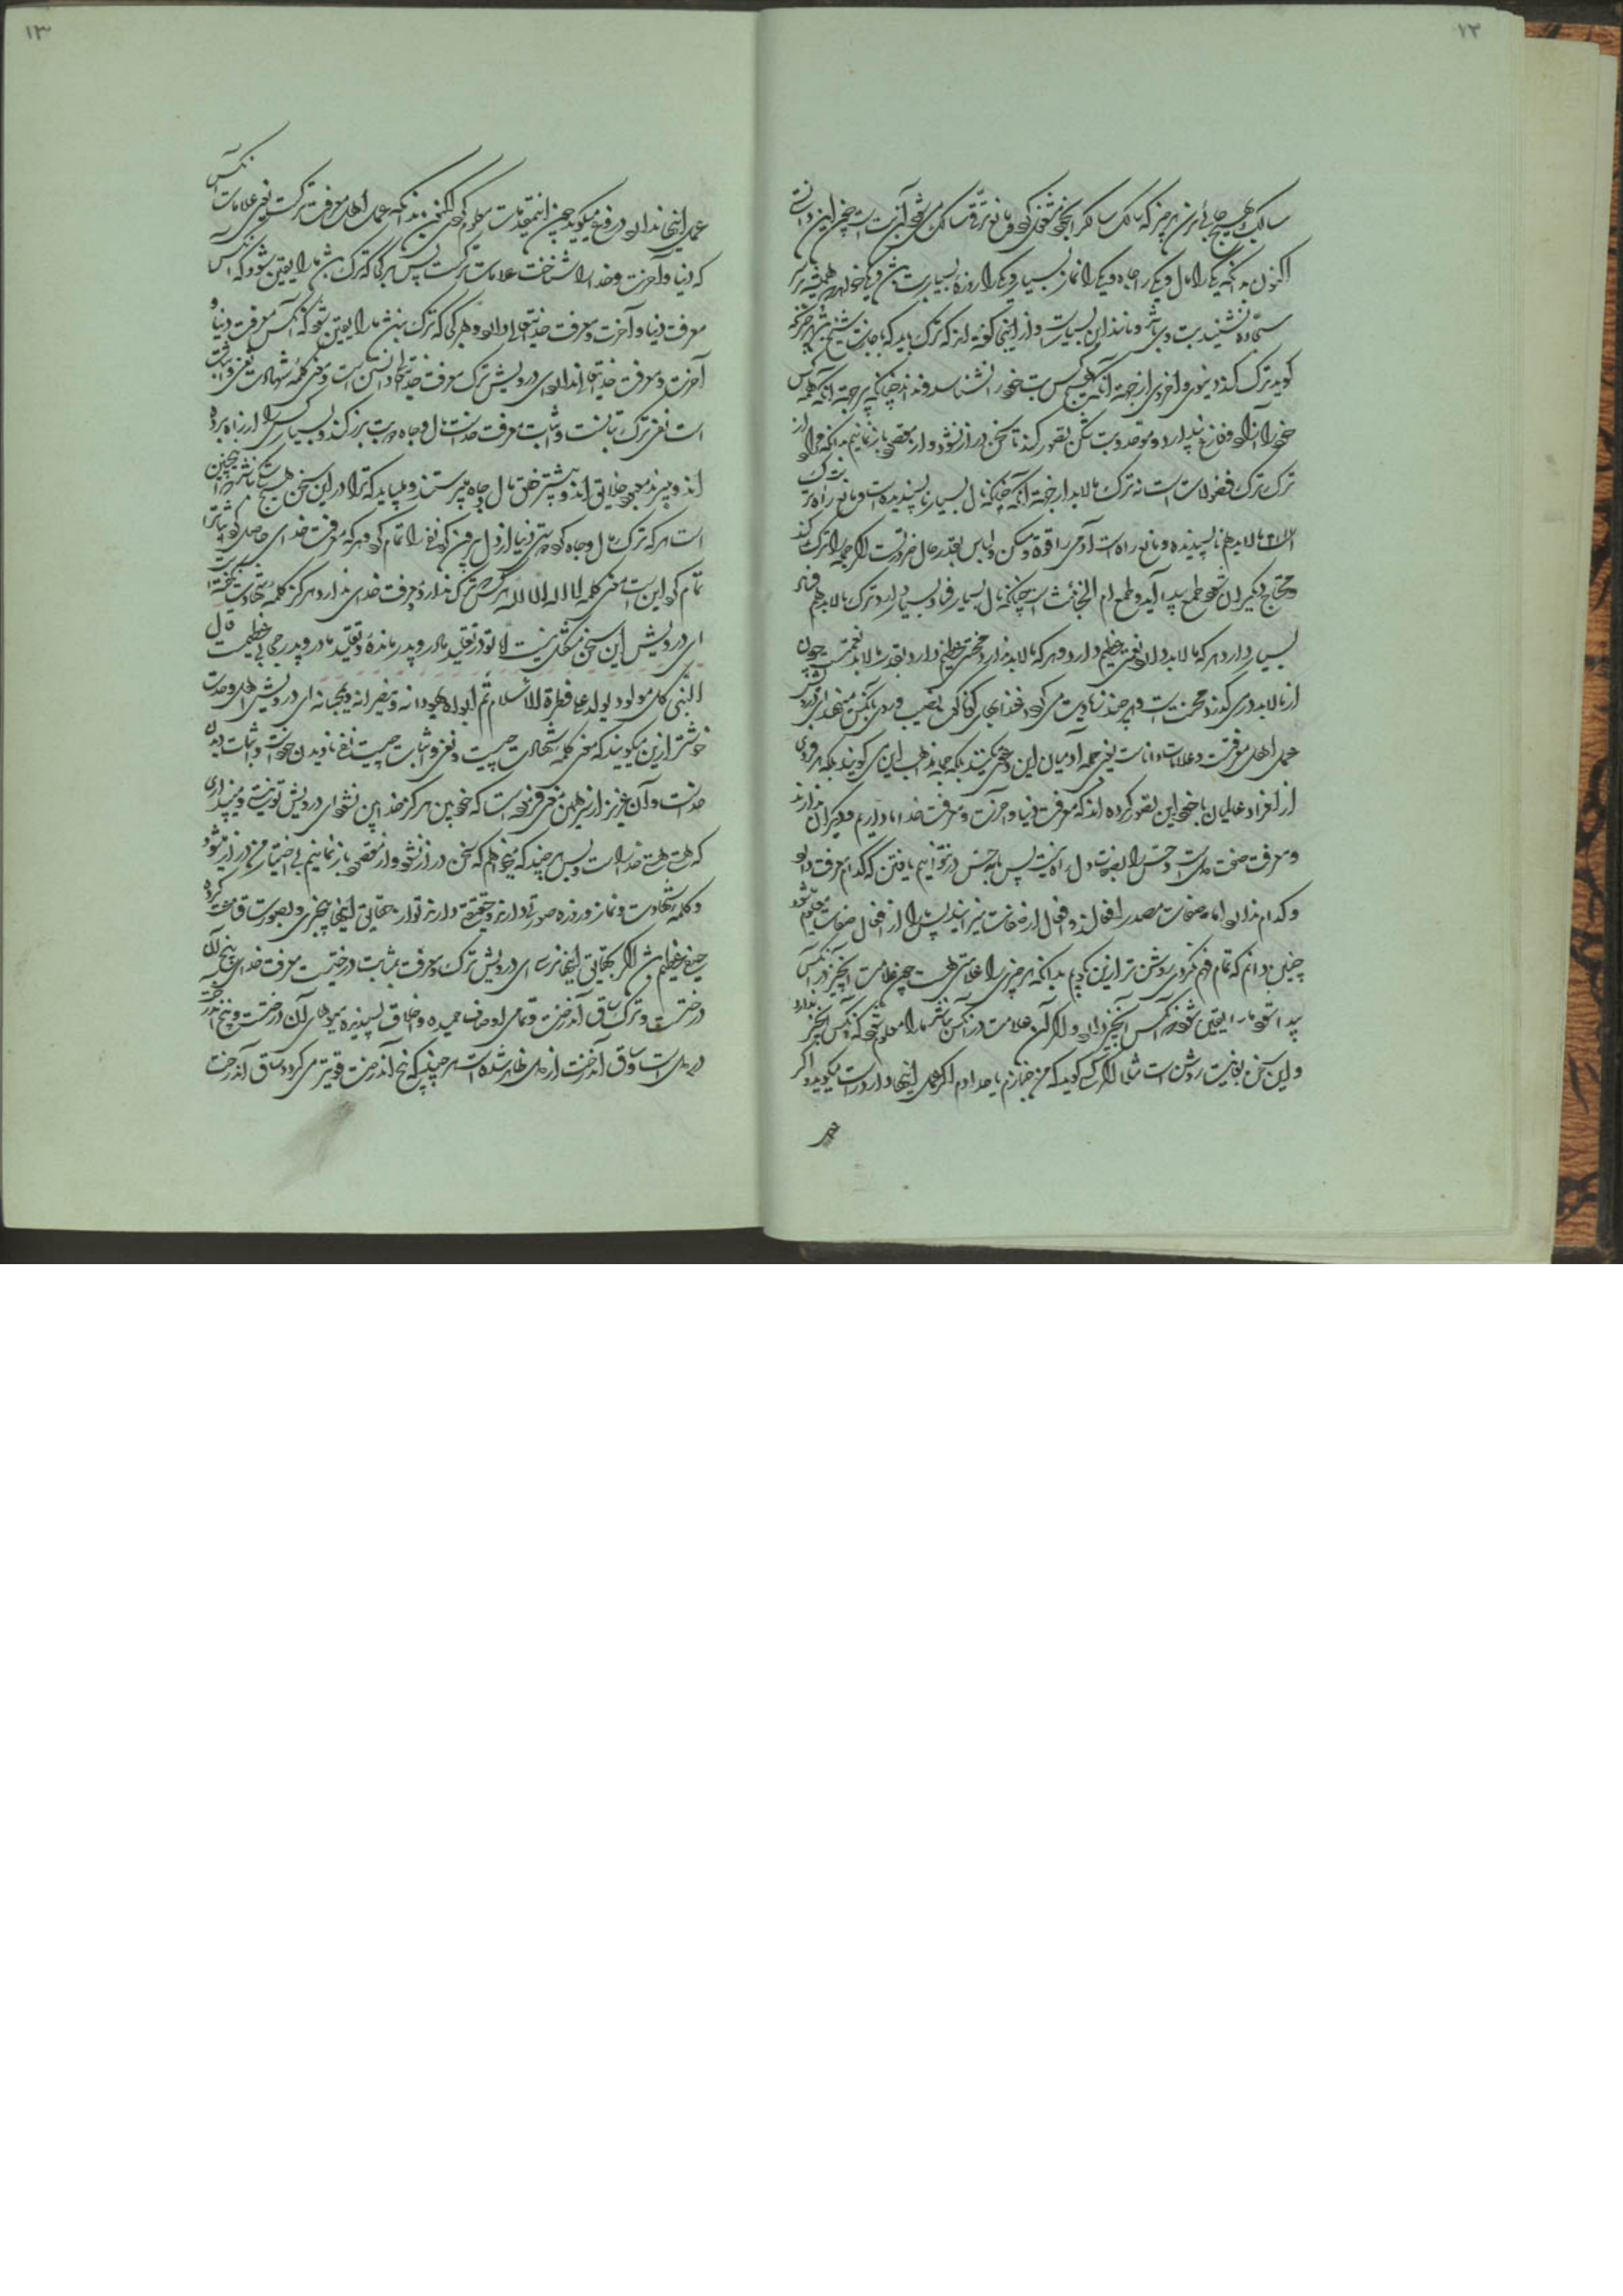 ۱۲
سالک هیچ حجابی بزرگ هر چیز که سالک سالک را بخود مشغول کند و مانع ترقی سالک می‌شود آن بت است چون این دانستی
اکنون بدانکه یکی را مال و یکی را جاه و یکی را نماز بسیار و یکی را روزه بسیار بت باشد و یکی خواهد همیشه بر
سجاده نشیند بت وی باشد و مانند این بسیار است و از اینجا گفته‌اند که ترک باید که با جازت شیخ باشد هر چیز که
گوید ترک کند دنیوی و اخروی از جهة آنکه هیچکس بت خود را نشناسد و نداند چنانکه هر جهة آنکه همه کس
خود را فارغ پندارد و موحد و بت شکن تصور کند تا سخن دراز نشود و از مقصود باز نمانیم بدانکه مراد از
ترک ترک فضولات است نه ترک مالابد از جهة آنکه چنانکه مال بسیار ناپسندیده است و مانع راه ترک
مالابد هم ناپسندیده و مانع راه است آدمی را قوت و مسکن و لباس بقدر حال ضرورتست اگر جمله را ترک کند
محتاج دیگران شود طمع پیدا آید و طمع ام الخبائث است چنانکه مال بسیار فساد بسیار دارد ترک مالابد هم فساد
بسیار دارد هر که مالابد دارد نعمتی عظیم دارد و هر که مالابد ندارد محنتی عظیم دارد و بقدر مالابد نعمتست چون
از مالابد در می‌گذرد محنت است و هر چند زیادت می‌گردد
عمل اهل معرفت و علامات دانا است یعنی جمله آدمیان این دعوی میکنند بلکه جمله مذاهب این می‌گویند بلکه هر فردی
از افراد عالمیان با خود این تصور کرده‌اند که معرفت دنیا و آخرت و معرفت خدا ما داریم و دیگران ندارند
و معرفت صفت دل است و حس را بصفات دل راه نیست پس ما بحس در نتوانیم یافتن که کدام معرفت دارد
و کدام ندارد اما صفات مصدر افعالند و افعال از صفات می‌زایند پس ما را از افعال صفات معلوم شود
چنین دانم که تمام فهم نکردی روشن‌تر ازین بگویم بدانکه هر چیزی را علامتی هست چون علامت آن چیز در آنکس
پیدا شود ما را یقین شود که آنکس آن چیز دارد و اگر آن علامت در آنکس نباشد ما را معلوم شود که آنکس آن چیز ندارد
و این سخن بغایت روشن است مثلا اگر کسی گوید که من خبازم یا حدادم اگر عمل اینها دارد راست میگوید و اگر
عمل
۱۳
عمل اینها ندارد دروغ میگوید چون این مقدمات معلوم کردی اکنون بدانکه عمل اهل معرفت ترکست یعنی علامات آنکس
که دنیا و آخرت و خدا را شناخت علامات ترکست پس هر کجا که ترک باشد ما را یقین شود که آنکس
معرفت دنیا و آخرت و معرفت خدایتعالی دارد و هر کجا که ترک نباشد ما را یقین شود که آنکس معرفت دنیا و
آخرت و معرفت خدایتعالی ندارد ای درویش ترک معرفت خدایتعالی دانستن است و معنی کلمه شهادت نفی و اثبات
است نفی ترک بتانست و اثبات معرفت خداست مال و جاه دو بت بزرگند و بسیار کس را از راه برده
اند و میبرند معبود خلایق‌اند و بیشتر خلق مال و جاه میپرستند و میباید که ترا در این سخن هیچ شک نباشد همچنین
است هر که ترک مال و جاه کرد و دوستی دنیا از دل بیرون کرد نفی را تمام کرد و هر که معرفت خدای حاصل کرد اثبات را
تمام کرد این است معنی کلمه لا اله الا الله هر کس ترک ندارد و معرفت خدای ندارد هرگز کلمه شهادت نگفته است
ای درویش این سخن مشکل نیست اما تو در تقلید مادر و پدر مانده‌ و تقلید مادر و پدر حجابی عظیمست قال
النبی کل مولود یولد علی فطرة الاسلام ثم ابواه یهودانه و ینصرانه و یمجسانه ای درویش اهل وحدت
خوشتر ازین میگویند که معنی کلمه شهادت چیست و نفی و اثبات چیست نفی نادیدن خود است و اثبات دیدن
خداست و آن عزیز از سر همین معنی فرموده است که خودبین هرگز خدابین نشود ای درویش تو نیست و میپنداری
که هستی هستی خدا راست و بس هر چند که میخواهم که سخن دراز نشود و از مقصود باز نمانیم بی اختیار من دراز میشود
و کلمه شهادت و نماز و روزه صورتی دارند و حقیقتی دارند تو از حقایق اینها بیخبری و بصورت قناعت کرده
حیفی عظیم باشد اگر بحقایق اینها نرسی ای درویش ترک و معرفت بمثابت درختیست معرفت خدای بیخ آن
درختست و ترک ساق آندرخت و تمامی اوصاف حمیده و اخلاق پسندیده میوه‌های آن درختست و بیخ آندرخت
در دل است و ساق آندرخت از دل ظاهر شده است هر چند که بیخ آندرخت قویتر می‌گردد ساق آندرخت